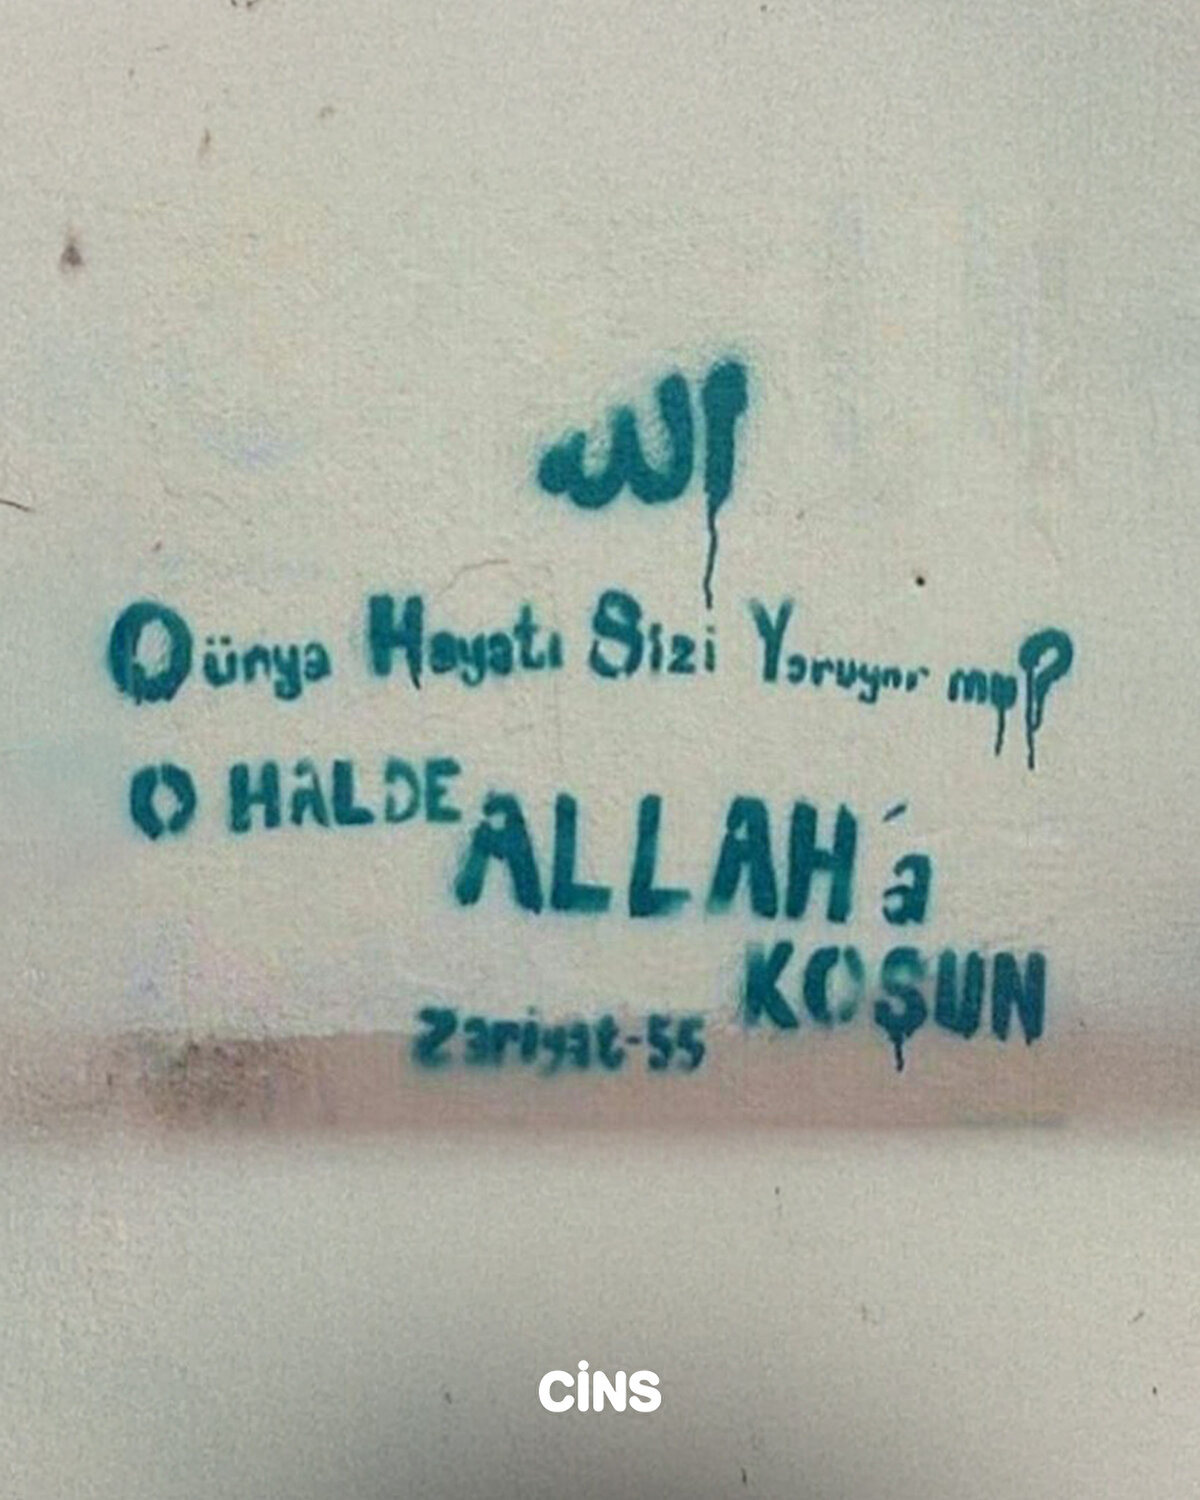 الله
Dünya Hayatı Sizi Yoruyor mu?
O HALDE ALLAH'a
KOŞUN
Zariyat-55
CİNS